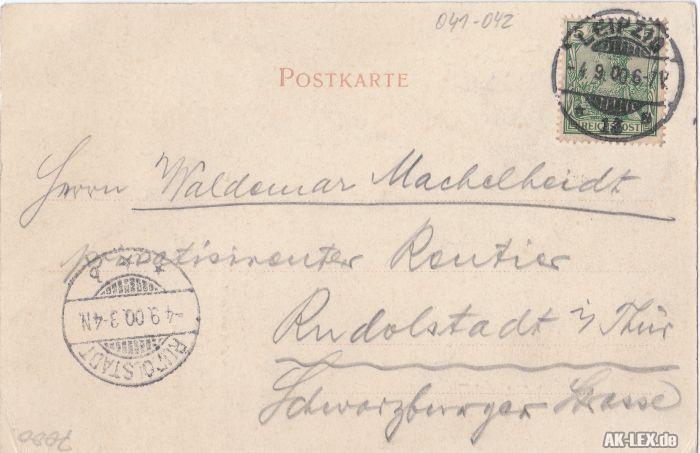 041-042
POSTKARTE
LEIPZIG
-4.9.00.6-7V.
* 13 *
REICHSPOST
Herrn Waldemar Machelheidt
privatisirenter Rentier
Rudolstadt i/Thür
Schwarzburger Strasse
-4.9.00.3-4N.
RUDOLSTADT
7080
AK-LEX.de